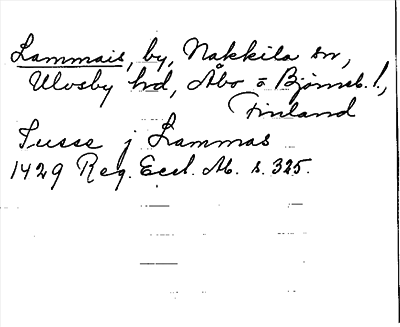 Lammais, by, Nakkila sn,
Ulvsby hd, Åbo o Björneb. l.,
Finland
Tusse j Lammas
1429 Reg. Eccl. Ab. s. 325.